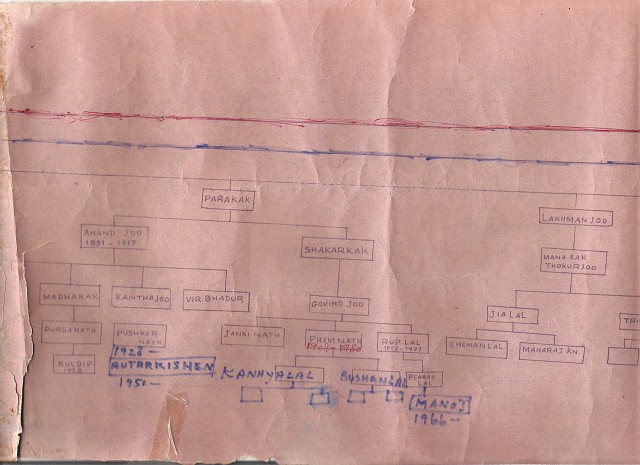 PARAKAK
LAKHMANJOO
ANAND JOO
1851 - 1915
SHAKARKAK
MANA KAK
THOKURJOO
MADHAKAK
KANTHAJOO
VIR BHADUR
GOVIND JOO
JIALAL
DURGANATH
PUSHKER
NATH
1928 -
JANKI NATH
PREMNATH
RUPLAL
CHEMANLAL
MAHARAJ KN.
KULDIP
AUTARKISHEN
1951 -
KANHYALAL
BUSHANLAL
PEARAY
LAL
MANOJ
1966 -